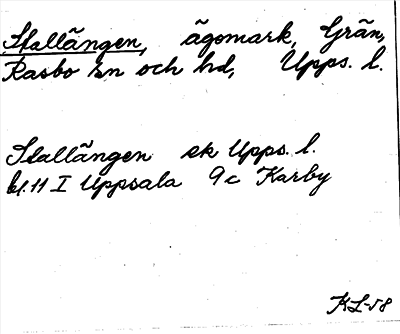 Stallängen, ägomark, Grän,
Rasbo sn och hd, Upps. l.
Stallängen ek Upps. l.
bl. 11 I Uppsala 9c Karby
KL-58